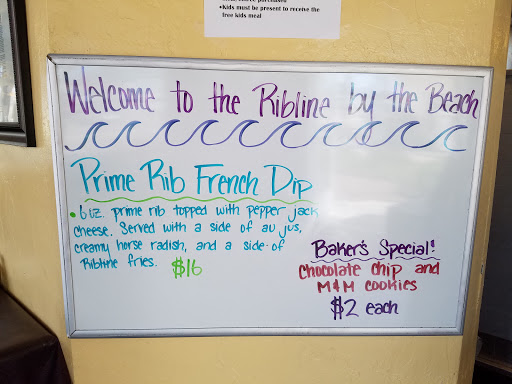 •Kids must be present to receive the
free kids meal
Welcome to the Ribline by the Beach
Prime Rib French Dip
• 6oz. prime rib topped with pepper jack
cheese. Served with a side of au jus,
creamy horse radish, and a side of
Ribline fries. $16
Baker's Special!
Chocolate chip and
M&M cookies
$2 each